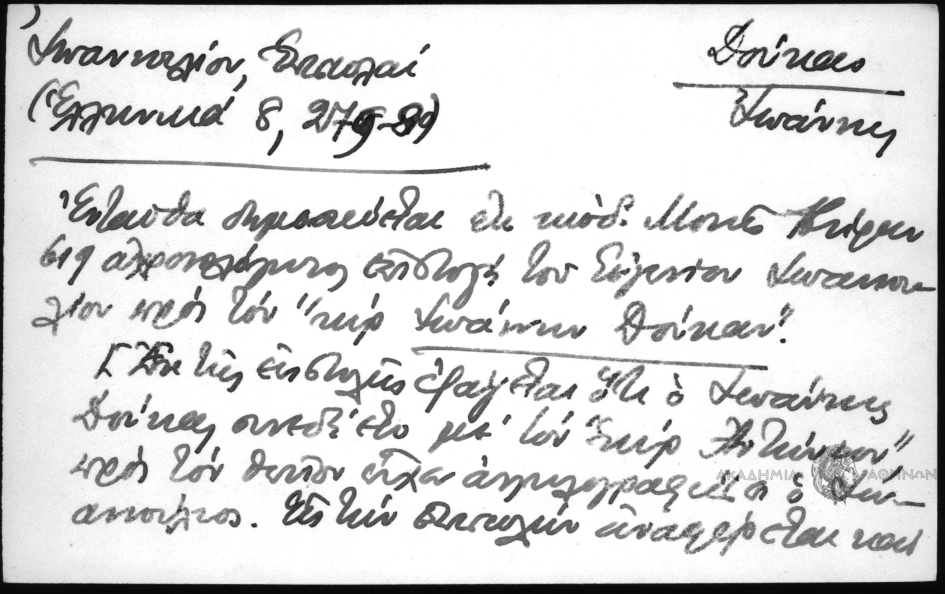 Ἰωαννουλίου, Ἐπιστολαί
(Ἑλληνικά 8, 279-89)
Δούκας
Ἰωάννης
Ἐνταῦθα δημοσιεύεται ἐκ κώδ. Μονῆς Ἰβήρων
619 ἀχρονολόγητος ἐπιστολή τοῦ Εὐγενίου Ἰωαννου-
λίου πρός τόν "κύρ Ἰωάννην Δούκαν".
[Ἐκ τῆς ἐπιστολῆς ἐξάγεται ὅτι ὁ Ἰωάννης
Δούκας συνεδέετο μέ τόν "κύρ Ἀντώνιον"
πρός τόν ὁποῖον εἶχεν ἀλληλογραφίαν ὁ
. Εἰς τήν ἐπιστολήν ἀναφέρεται καί
ΑΚΑΔΗΜΙΑ ΑΘΗΝΩΝ